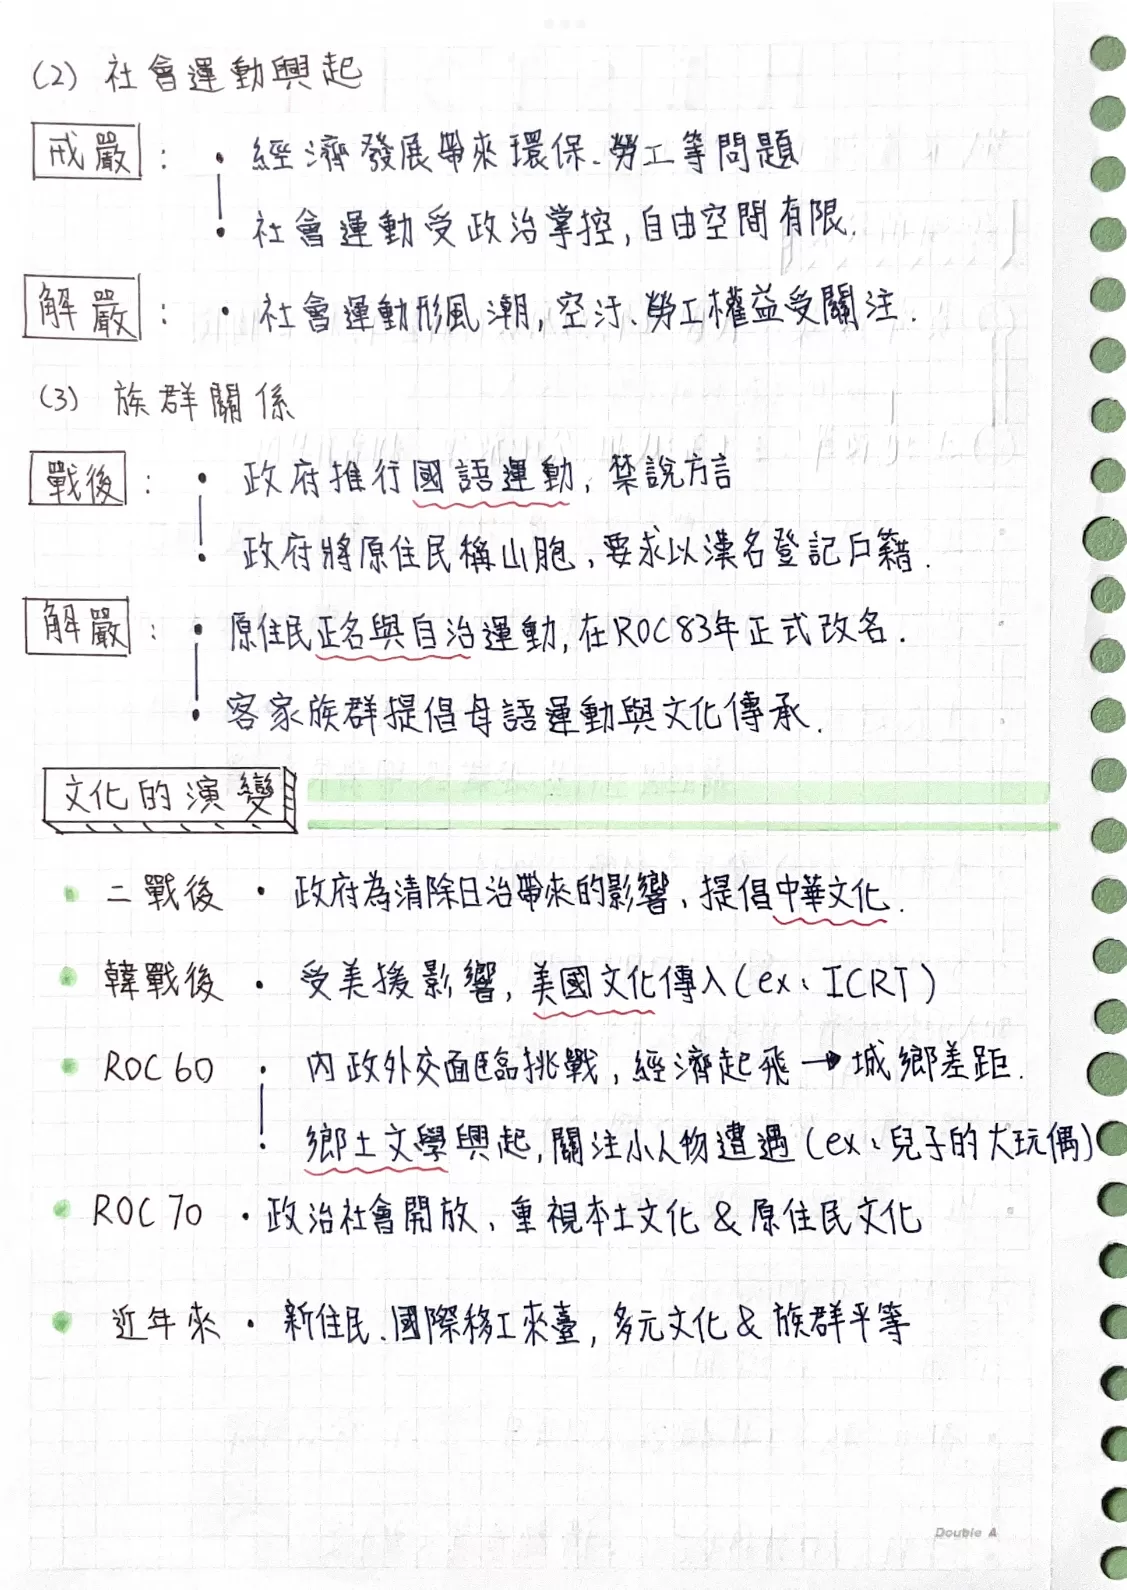 (2) 社會運動興起
戒嚴 : • 經濟發展帶來環保、勞工等問題
• 社會運動受政治掌控, 自由空間有限.
解嚴 : • 社會運動形風潮, 空汙、勞工權益受關注.
(3) 族群關係
戰後 : • 政府推行國語運動, 禁說方言
• 政府將原住民稱山胞, 要求以漢名登記戶籍.
解嚴 : • 原住民正名與自治運動, 在ROC83年正式改名.
• 客家族群提倡母語運動與文化傳承.
文化的演變
• 二戰後 • 政府為清除日治帶來的影響, 提倡中華文化.
• 韓戰後 • 受美援影響, 美國文化傳入(ex: ICRT)
• ROC 60 • 內政外交面臨挑戰, 經濟起飛→城鄉差距.
• 鄉土文學興起, 關注小人物遭遇(ex: 兒子的大玩偶)
• ROC 70 • 政治社會開放, 重視本土文化 & 原住民文化
• 近年來 • 新住民、國際移工來臺, 多元文化 & 族群平等
Double A